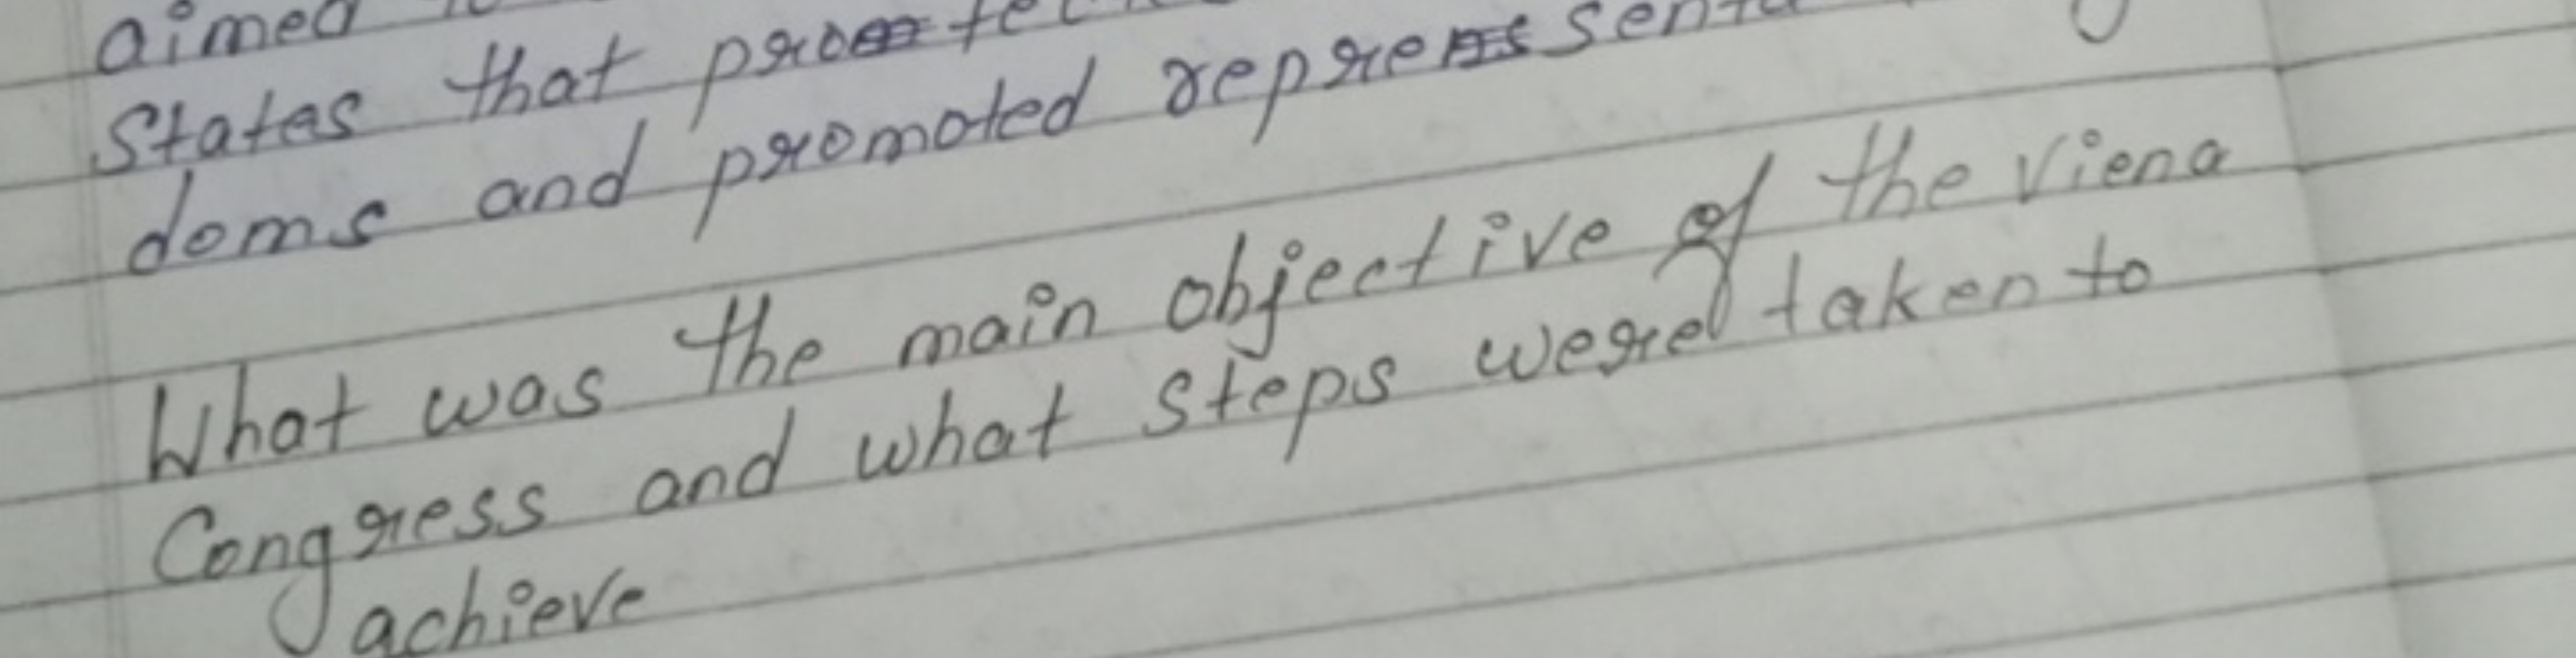 aimed
States that
doms and promoted
What was the main objective of the Viena
Congress and what steps were taken to
achieve